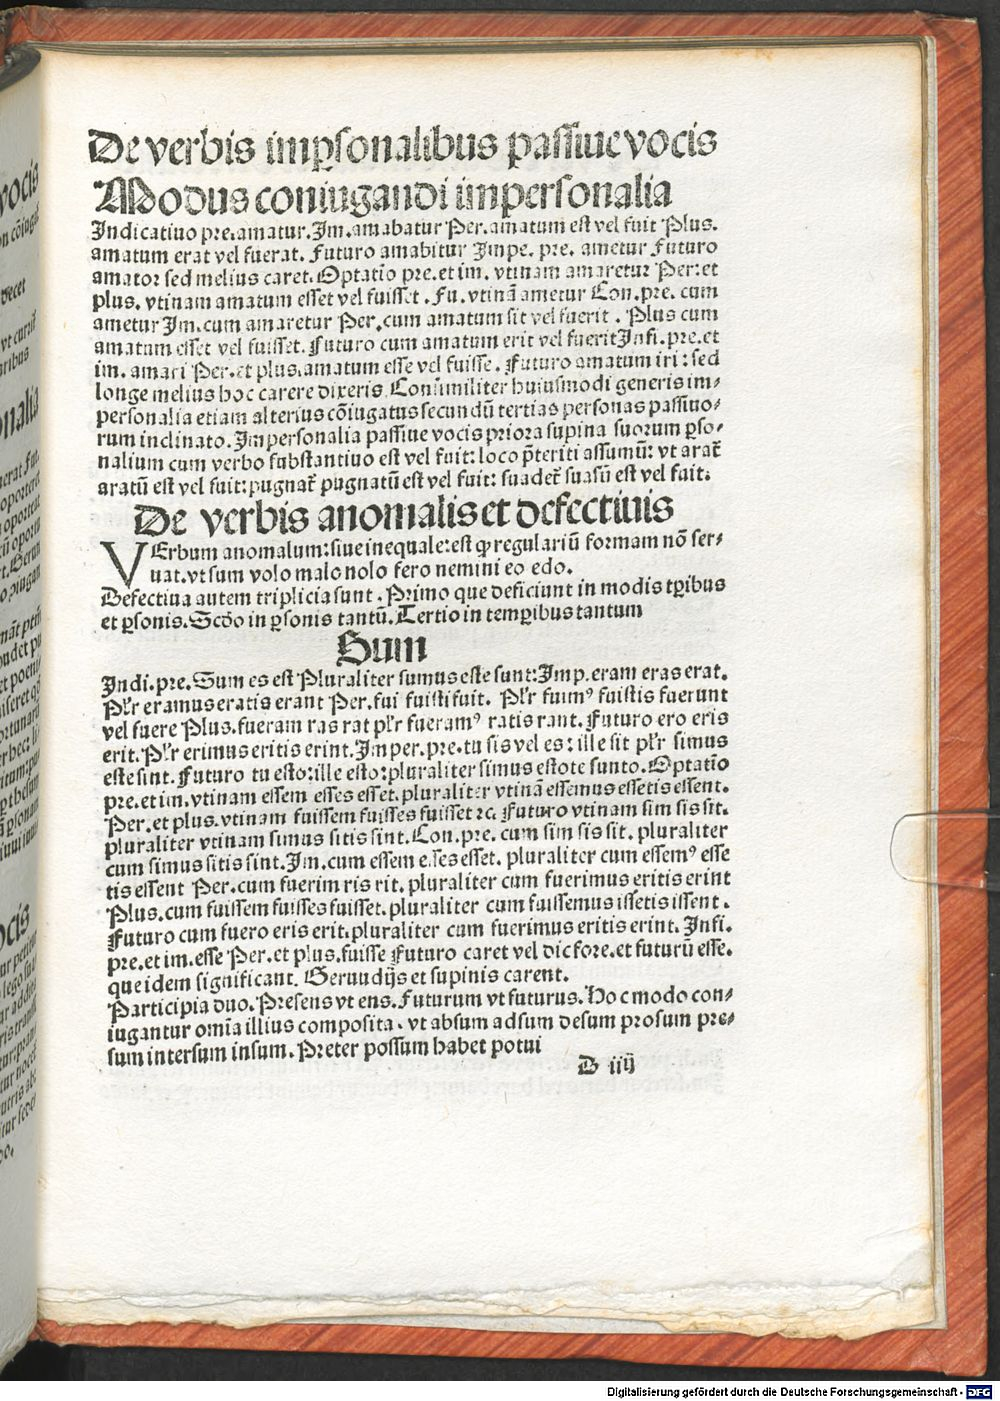 De verbis imp̱sonalibus passiue vocis
Modus coniugandi impersonalia
Indicatiuo pre.amatur.Im.amabatur Per.amatum est vel fuit Plus.
amatum erat vel fuerat. Futuro amabitur Impe. pre. ametur Futuro
amator sed melius caret. Optatio pre.et im. vtinam amaretur Per:et
plus. vtinam amatum esset vel fuisset. Fu. vtinā ametur Con.pre. cum
ametur Im.cum amaretur Per.cum amatum sit vel fuerit. Plus cum
amatum esset vel fuisset. Futuro cum amatum erit vel fuerit Infi. pre.et
im. amari Per.et plus.amatum esse vel fuisse. Futuro amatum iri: sed
longe melius hoc carere dixeris Consimiliter huiusmodi generis im-
personalia etiam alterius cōiugatus secundū tertias personas passiuo-
rum inclinato. Impersonalia passiue vocis priora supina suorum p̱so-
nalium cum verbo substantiuo est vel fuit: loco p̄teriti assumūt: vt arat᷑
aratū est vel fuit: pugnat᷑ pugnatū est vel fuit: suadet᷑ suasū est vel fuit.
De verbis anomalis et defectiuis
VErbum anomalum:siue inequale:est ꝙ regulariū formam nō ser-
uat.vt sum volo malo nolo fero nemini eo edo.
Defectiua autem triplicia sunt. Primo que deficiunt in modis tp̱ibus
et p̱sonis.Scd̄o in p̱sonis tantū.Tertio in temp̱ibus tantum
Sum
Indi.pre.Sum es est Pluraliter sumus este sunt:Imp.eram eras erat.
Pl᷑r eramus eratis erant Per.fui fuisti fuit. Pl᷑r fuimꝰ fuistis fuerunt
vel fuere Plus.fueram ras rat pl᷑r fueramꝰ ratis rant. Futuro ero eris
erit. Pl᷑r erimus eritis erint.Imper.pre.tu sis vel es: ille sit pl᷑r simus
este sint. Futuro tu esto:ille esto:pluraliter simus estote sunto. Optatio
pre.et im.vtinam essem esses esset.pluraliter vtinā essemus essetis essent.
Per.et plus.vtinam fuissem fuisses fuisset ⁊c. Futuro vtinam sim sis sit.
pluraliter vtinam simus sitis sint.Con.pre. cum sim sis sit. pluraliter
cum simus sitis sint.Im.cum essem esses esset. pluraliter cum essemꝰ esse
tis essent Per.cum fuerim ris rit. pluraliter cum fuerimus eritis erint
Plus.cum fuissem fuisses fuisset.pluraliter cum fuissemus issetis issent.
Futuro cum fuero eris erit.pluraliter cum fuerimus eritis erint. Infi.
pre.et im.esse Per.et plus.fuisse Futuro caret vel dic fore.et futurū esse.
que idem significant. Gerundijs et supinis carent.
Participia duo. Presens vt ens. Futurum vt futurus. Hoc modo con-
iugantur omīa illius composita. vt absum adsum desum prosum pre-
sum intersum insum. Preter possum habet potui
D iiij
Digitalisierung gefördert durch die Deutsche Forschungsgemeinschaft - DFG